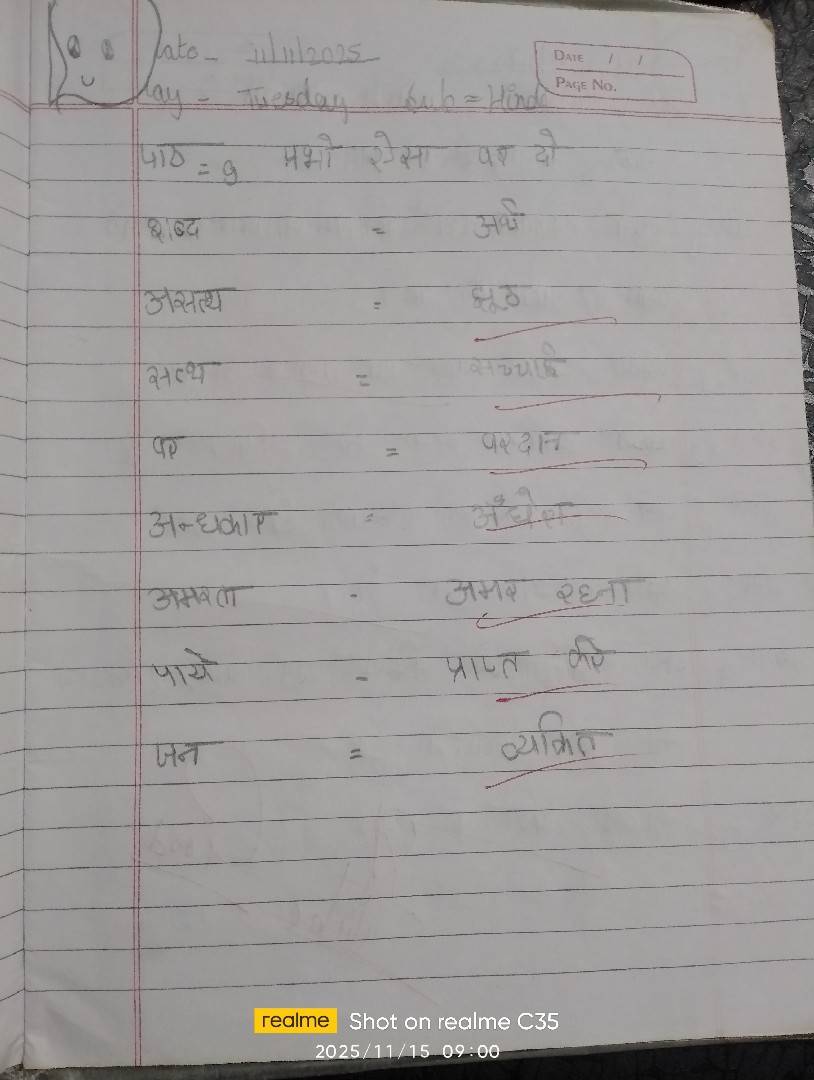 Date - 11/11/2025
DATE / /
Day - Tuesday Sub = Hindi
PAGE NO.
पाठ = 9 प्रभो ऐसा वर दो
शब्द = अर्थ
असत्य = झूठ
सत्य = सच्चाई
वर = वरदान
अन्धकार = अँधेरा
अमरता - अमर रहना
पाये - प्राप्त करे
जन = व्यकित
realme Shot on realme C35
2025/11/15 09:00